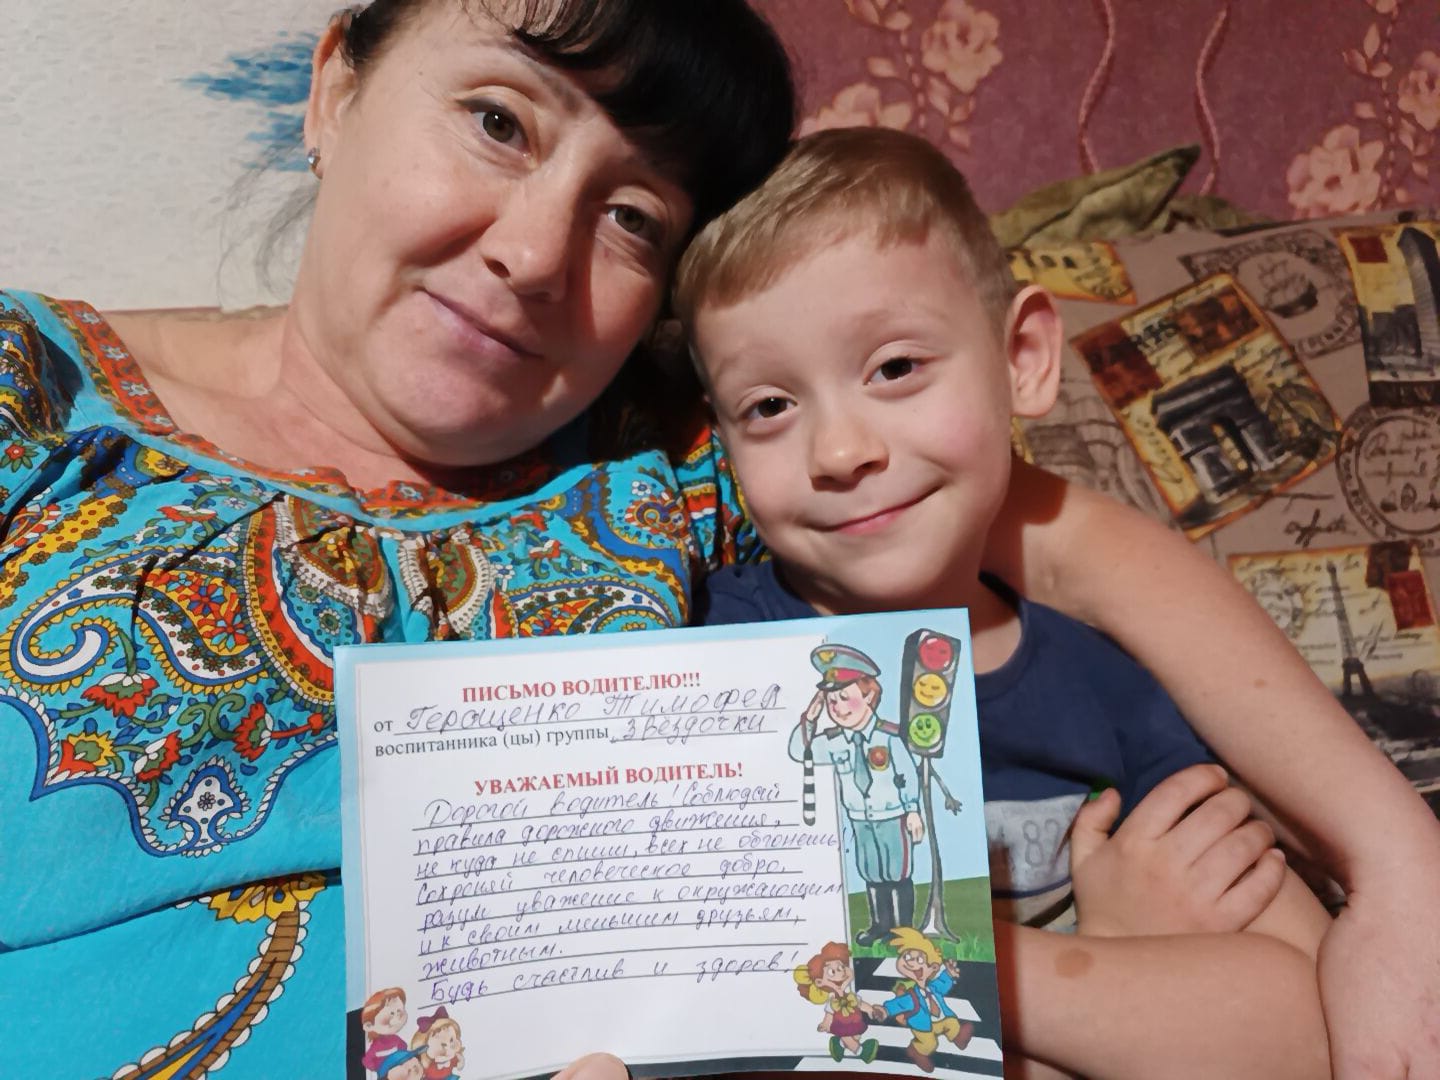 ПИСЬМО ВОДИТЕЛЮ!!!
от Геращенко Тимофея
воспитанника (цы) группы „Звёздочки
УВАЖАЕМЫЙ ВОДИТЕЛЬ!
Дорогой водитель! Соблюдай
правила дорожного движения,
не куда не спиши, всех не обгонешь!!
Сохраняй человеческое добро,
разум уважение к окружающим
и к своим меньшим друзьям,
животным.
Будь счастлив и здоров!